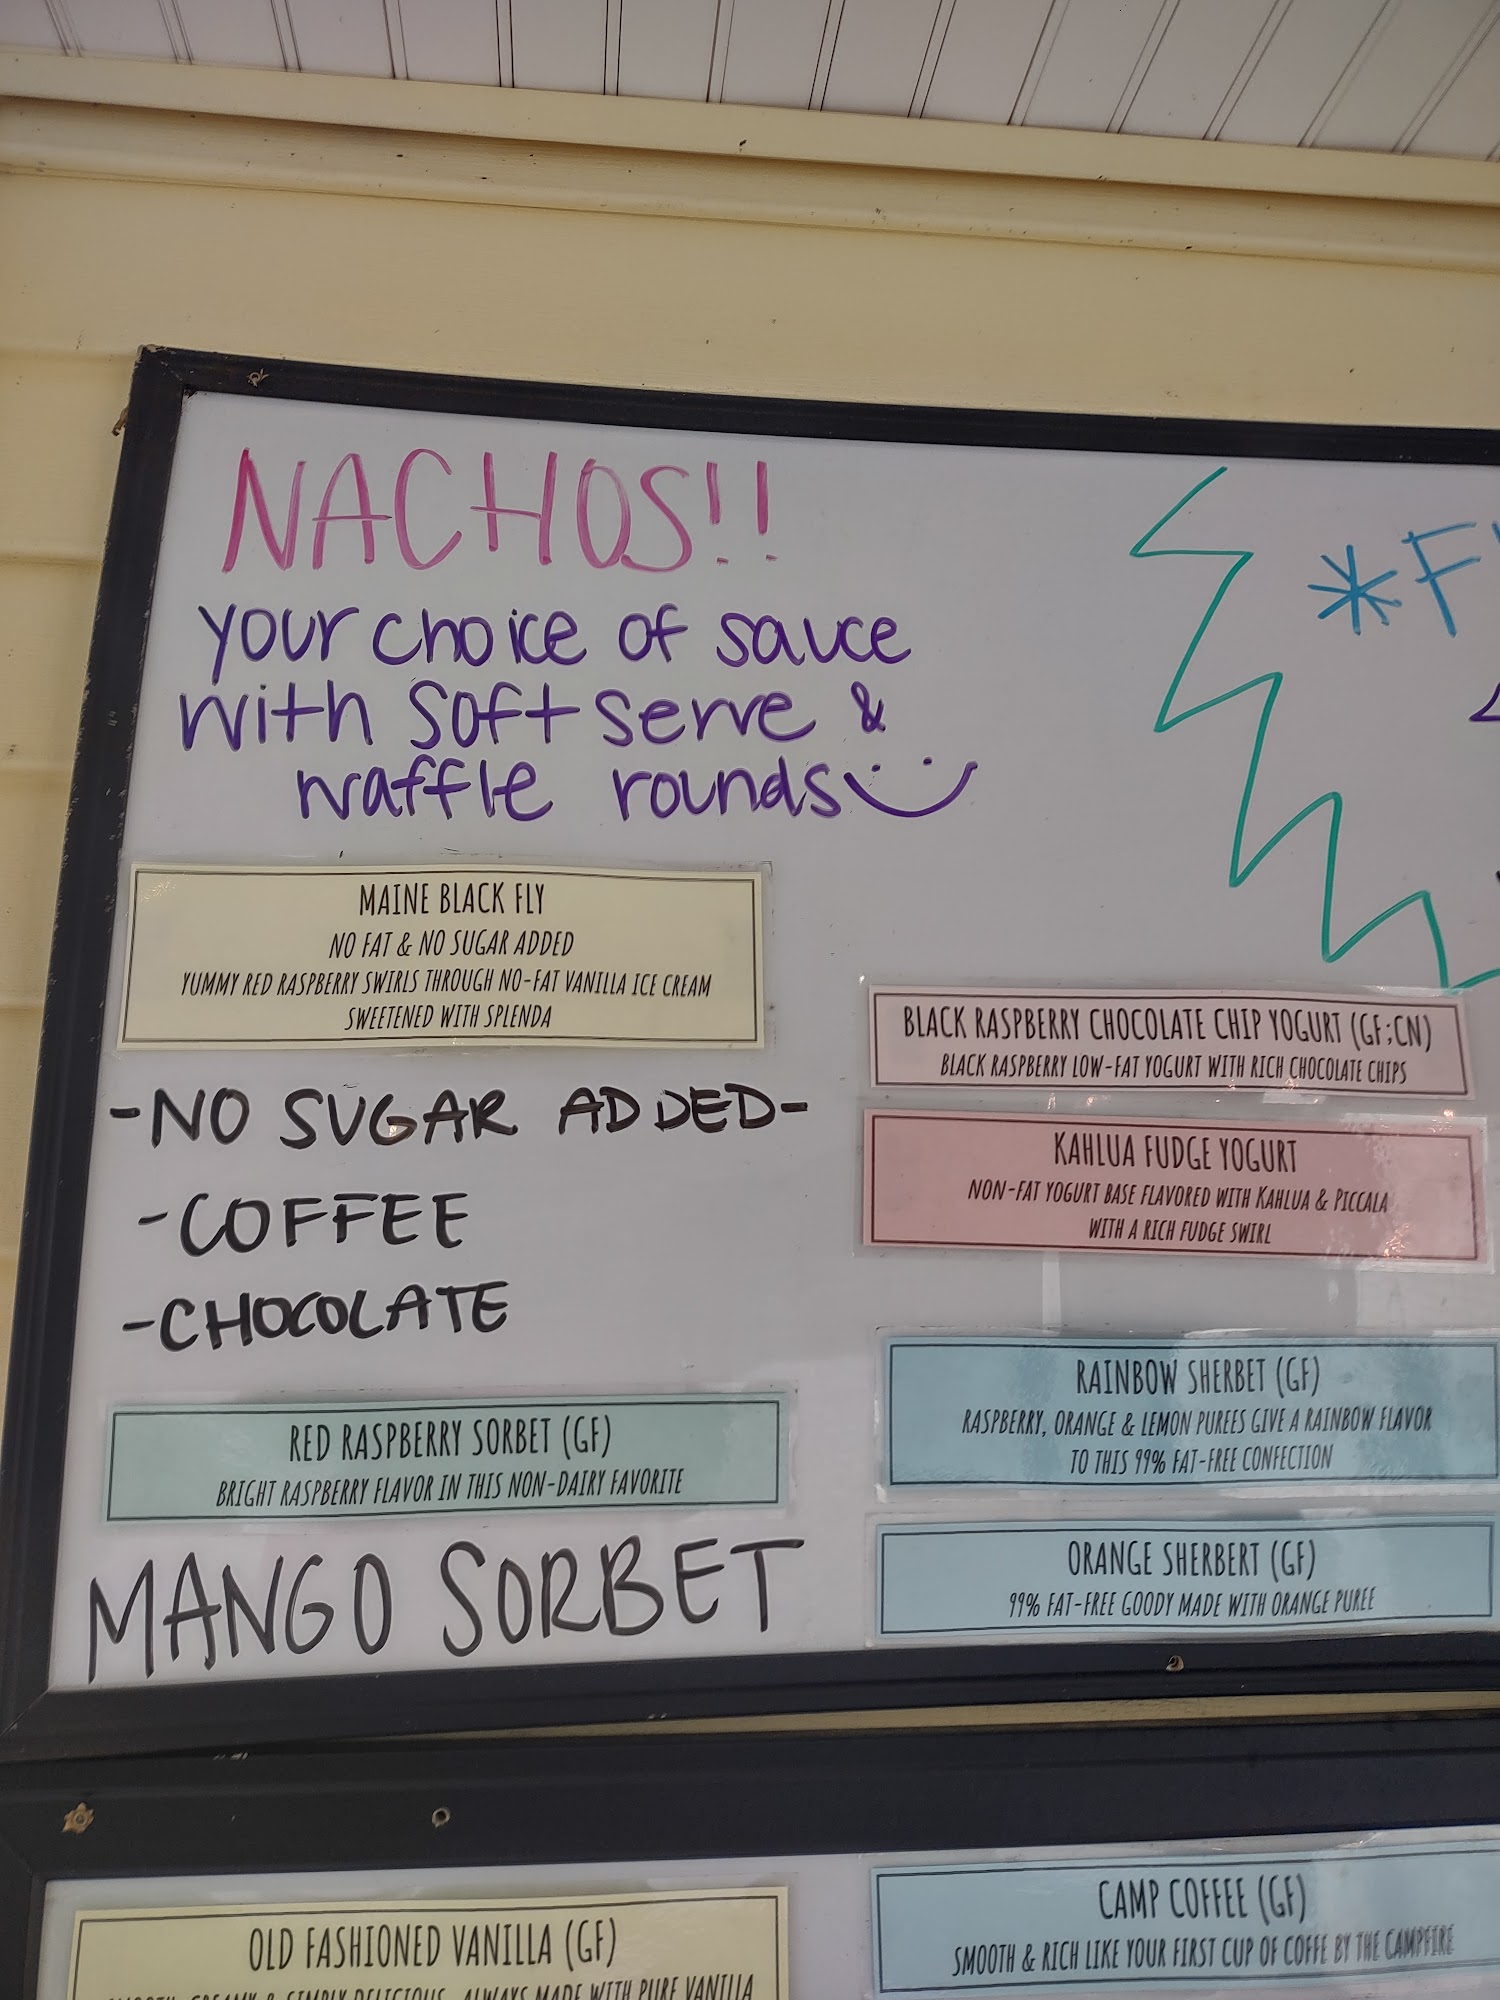 NACHOS!!
your choice of sauce
with soft serve &
waffle rounds
*F
MAINE BLACK FLY
NO FAT & NO SUGAR ADDED
YUMMY RED RASPBERRY SWIRLS THROUGH NO-FAT VANILLA ICE CREAM
SWEETENED WITH SPLENDA
-NO SUGAR ADDED-
-COFFEE
-CHOCOLATE
RED RASPBERRY SORBET (GF)
BRIGHT RASPBERRY FLAVOR IN THIS NON-DAIRY FAVORITE
MANGO SORBET
BLACK RASPBERRY CHOCOLATE CHIP YOGURT (GF;CN)
BLACK RASPBERRY LOW-FAT YOGURT WITH RICH CHOCOLATE CHIPS
KAHLUA FUDGE YOGURT
NON-FAT YOGURT BASE FLAVORED WITH KAHLUA & PICCALA
WITH A RICH FUDGE SWIRL
RAINBOW SHERBET (GF)
RASPBERRY, ORANGE & LEMON PUREES GIVE A RAINBOW FLAVOR
TO THIS 99% FAT-FREE CONFECTION
ORANGE SHERBERT (GF)
99% FAT-FREE GOODY MADE WITH ORANGE PUREE
OLD FASHIONED VANILLA (GF)
SMOOTH, CREAMY & SIMPLY DELICIOUS, ALWAYS MADE WITH PURE VANILLA
CAMP COFFEE (GF)
SMOOTH & RICH LIKE YOUR FIRST CUP OF COFFE BY THE CAMPFIRE